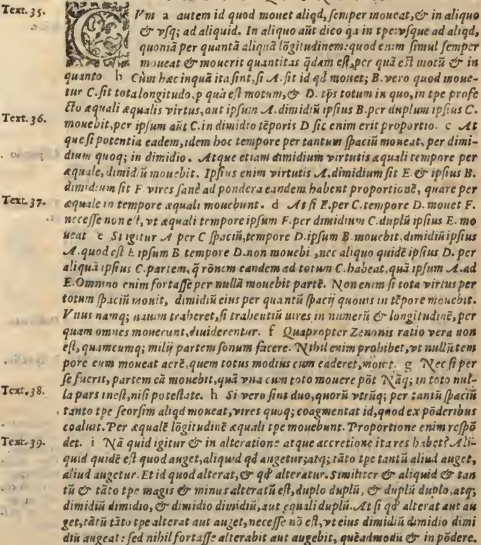 Text.35. Vm a autem id quod mouet aliqd, semper moueat, & in aliquo
& vsq; ad aliquid. In aliquo aũt dico qa in tpe: vsque ad aliqd,
quoniã per quantã aliquã lõgitudinem: quod enim simul semper
mouet & mouerit quantitas qdam est, per quã est motũ & in
quanto h Cùm hæc inquã ita sint, si A. sit id qd mouet; B. vero quod moue-
tur C. sit tota longitudo. p quã est motum, & D. tps totum in quo, in tpe profe
Text.36. cto æquali æqualis virtus, aut ipsum A. dimidiũ ipsius B. per duplum ipsius C.
mouebit, per ipsum aũt C. in dimidio tẽporis D sic enim erit proportio. c At
que si potentia eadem, idem hoc tempore per tantum spaciũ moueat, per dimi-
dium quoq; in dimidio. Atque etiam dimidium virtutis æquali tempore per
æquale, dimid. ũ mouebit. Ipsius enim virtutis A. dimidium sit E & ipsius B.
dimidium sit F vires sanè ad pondera eandem habent proportionẽ, quare per
Text.37. æquale in tempore æquali mouebunt. d At si E. per C. tempore D. mouet F.
necesse non e´t, vt æquali tempore ipsum F. per dimidium C. duplũ ipsius E. mo
ueat e Si igitur A per C spaciũ, tempore D. ipsum B mouebit. dimidiũ ipsius
A. quod est E ipsum B tempore D. non mouebi, nec aliquo quidẽ ipsius D. per
aliquã ipsius C. partem, q̃ rõnem eandem ad totum C. habeat, quã ipsum A. ad
E. Omnino enim fortasse per nullã mouebit partẽ. Non enim si tota virtus per
totum spaciũ mouit, dimidiũ eius per quantũ spacij quouis in tẽpore mouebit.
Vnus namq; nauim traheret, si trahentiũ uires in numerũ & longitudinẽ, per
quam omnes mouerunt, diuiderentur. f Quapropter Zenonis ratio vera non
est, quamcumq; milij partem sonum facere. Nihil enim prohibet, vt nullũ tem
pore eum moueat aerẽ, quem totus modius cum caderet, mouit. g Nec si per
se fuerit, partem eã mouebit, quã vna cum toto mouere põt Nãq; in toto nul-
Text.38. la pars inest, nisi potestate. h Si vero sint duo, quorũ vtrũq; per tantũ spaciũ
tanto tpe seorsim aliqd moueat, vires quoq; coagmentat id, quod ex põderibus
coaluit. Per æqualẽ lõgitudinẽ æquali tpe mouebunt. Proportione enim respõ
Text.39. det. i Nã quid igitur & in alteratione atque accretione ita res habet? Ali-
quid quidẽ est quod auget, aliquid qd augetur, atq; tãto tpe tantũ aliud auget,
aliud augetur. Et id quod alterat, & qd alteratur. Similiter & aliquid & tan
tũ & tãto tpe magis & minus alteratũ est, duplo duplũ, & duplũ duplo, atq;
dimidiũ dimidio, & dimidio dimidiũ, aut equali duplũ. At si qd alterat aut au
get, tãtũ tãto tpe alterat aut auget, necesse nõ est, vt eius dimidiũ dimidio dimi
diũ augeat: sed nihil fortasse alterabit aut augebit, quẽadmodũ & in põdere.